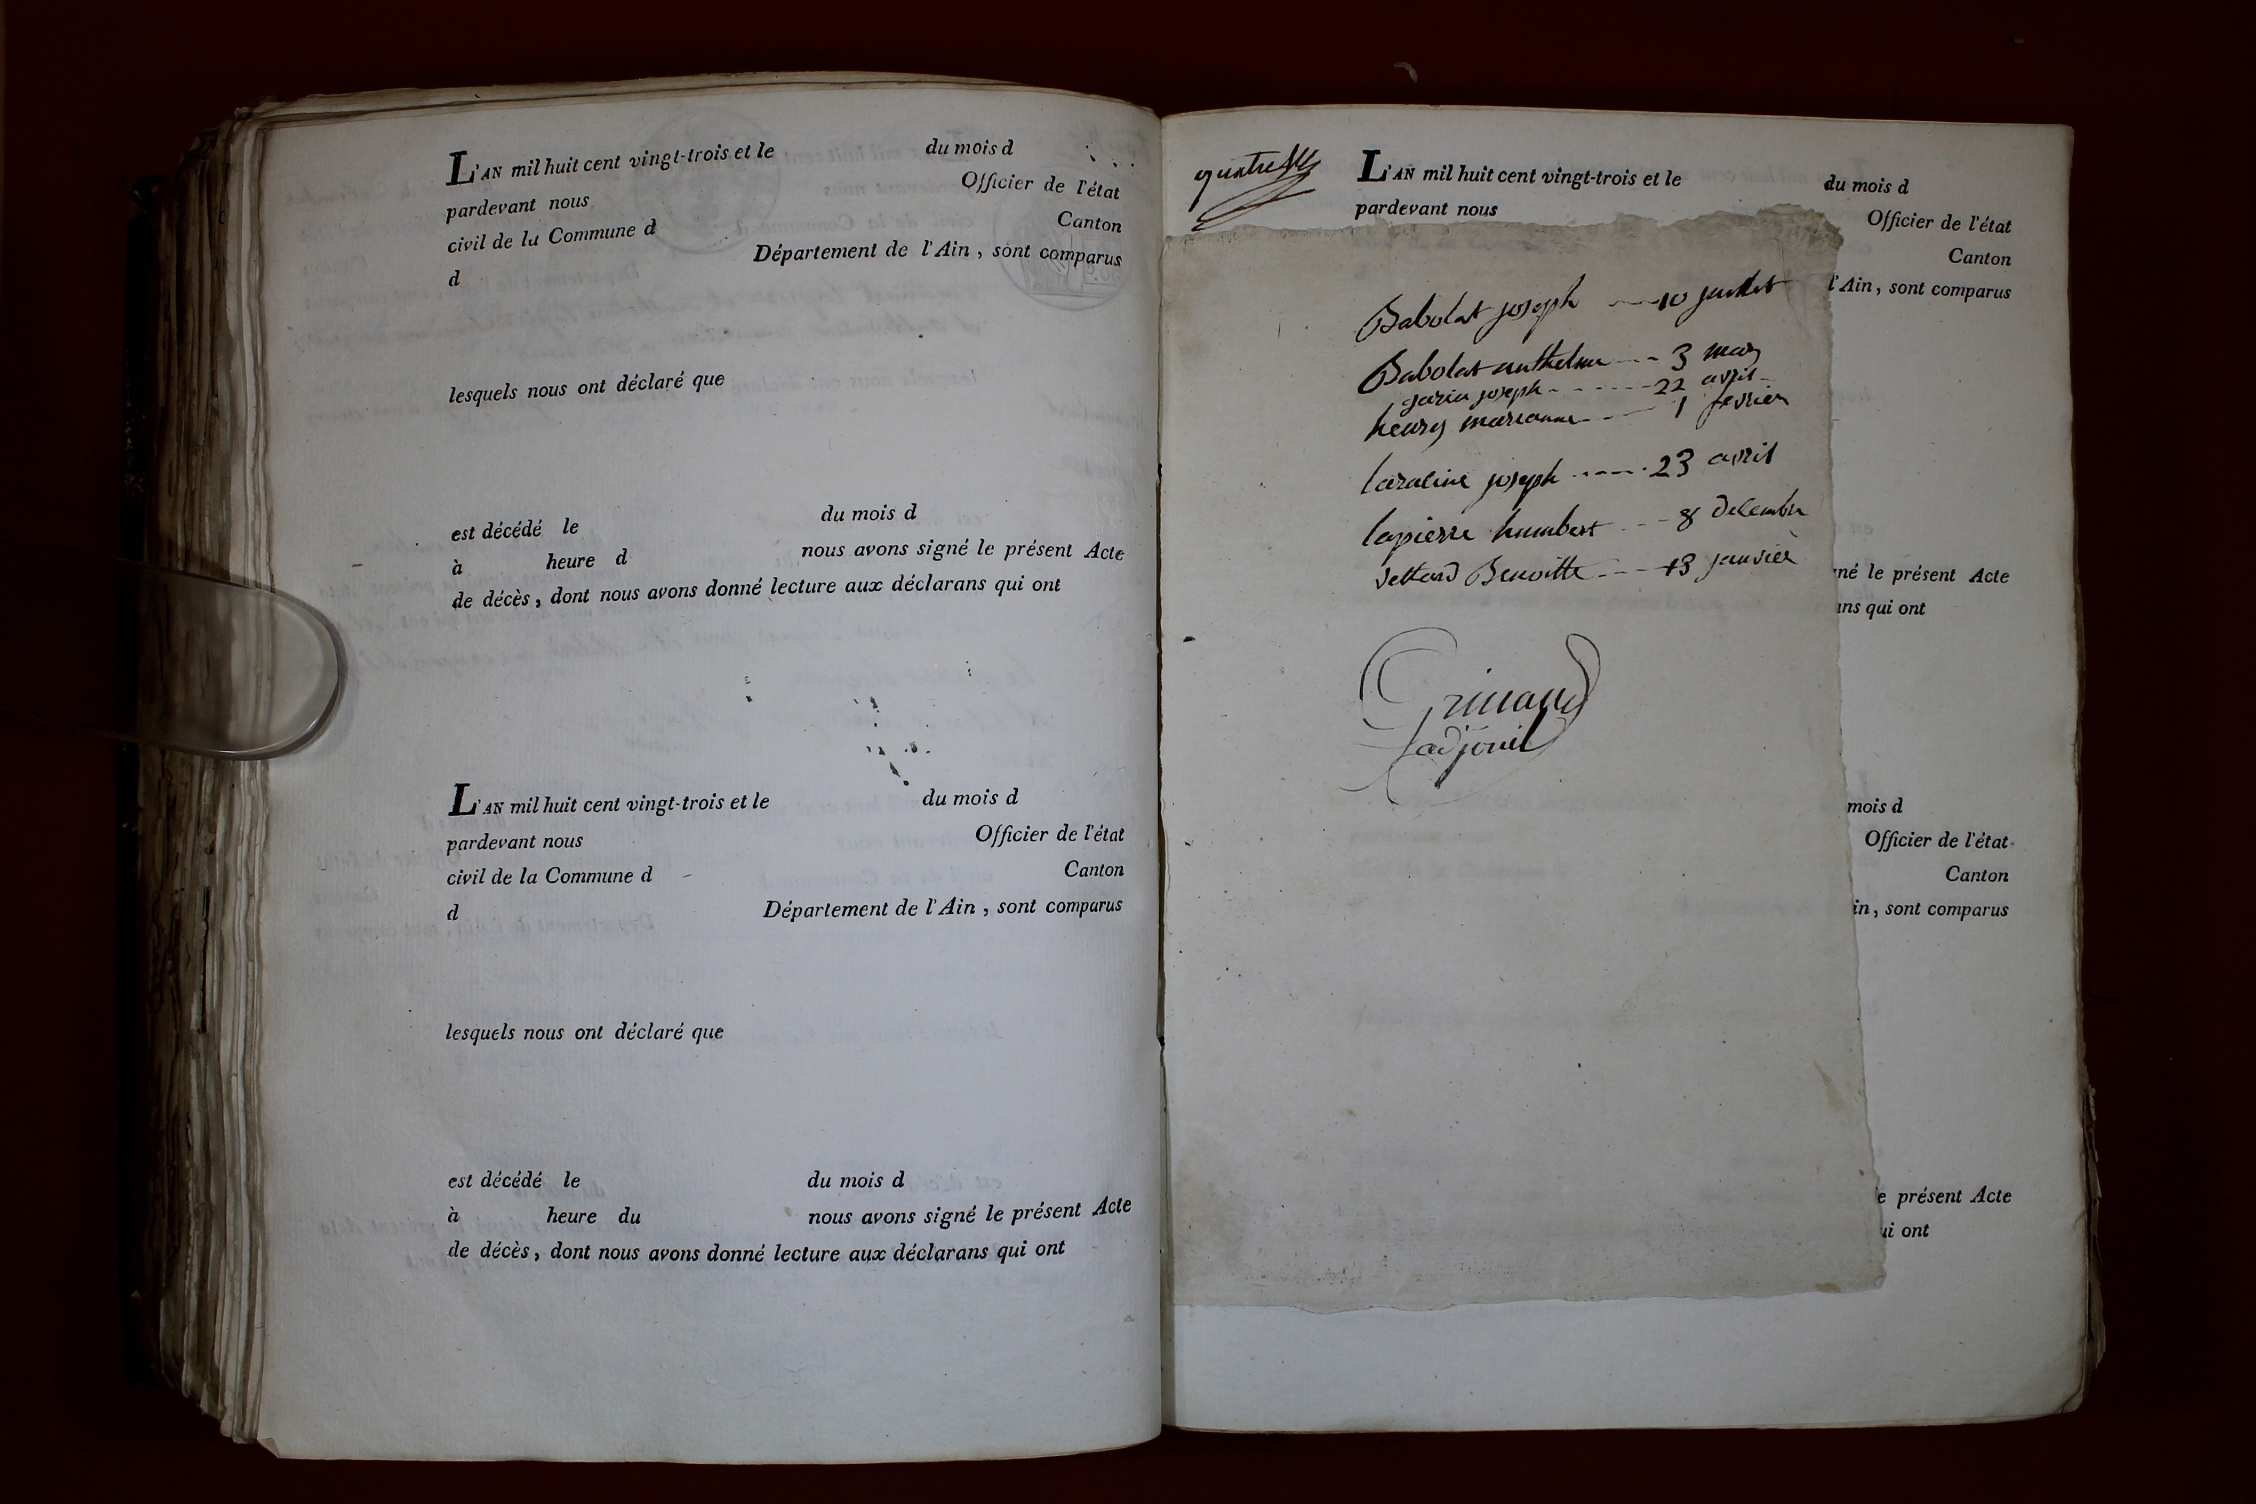 L'AN mil huit cent vingt-trois et le du mois d
pardevant nous Officier de l'état
civil de la Commune d Canton
d Département de l'Ain, sont comparus
lesquels nous ont déclaré que
est décédé le du mois d
à heure d nous avons signé le présent Acte
de décès, dont nous avons donné lecture aux déclarans qui ont
L'AN mil huit cent vingt-trois et le du mois d
pardevant nous Officier de l'état
civil de la Commune d Canton
d Département de l'Ain, sont comparus
lesquels nous ont déclaré que
est décédé le du mois d
à heure du nous avons signé le présent Acte
de décès, dont nous avons donné lecture aux déclarans qui ont
L'AN mil huit cent vingt-trois et le du mois d
pardevant nous Officier de l'état
Canton
l'Ain, sont comparus
Babolat joseph 10 juillet
Babolat anthelme 3 mars
joseph 22 avril
henry marianne 1 fevrier
laraline joseph 23 avril
lapierre humbert 8 decembre
vettard Benoitte 13 janvier
né le présent Acte
ans qui ont
adjoint
mois d
Officier de l'état
Canton
in, sont comparus
e présent Acte
ui ont